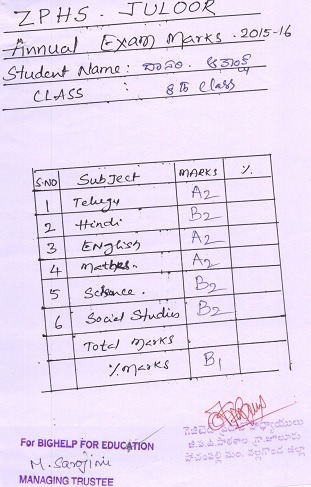 ZPHS. JULOOR
Annual Exam Marks. 2015-16
Student Name:
CLASS : 8th Class
S.NO Subject MARKS %
1 Telugu A2
2 Hindi B2
3 English A2
4 Mathes. A2
5 Science. B2
6 Social Studies B2
Total Marks
% Marks B1
For BIGHELP FOR EDUCATION
M. Sarojini
MANAGING TRUSTEE